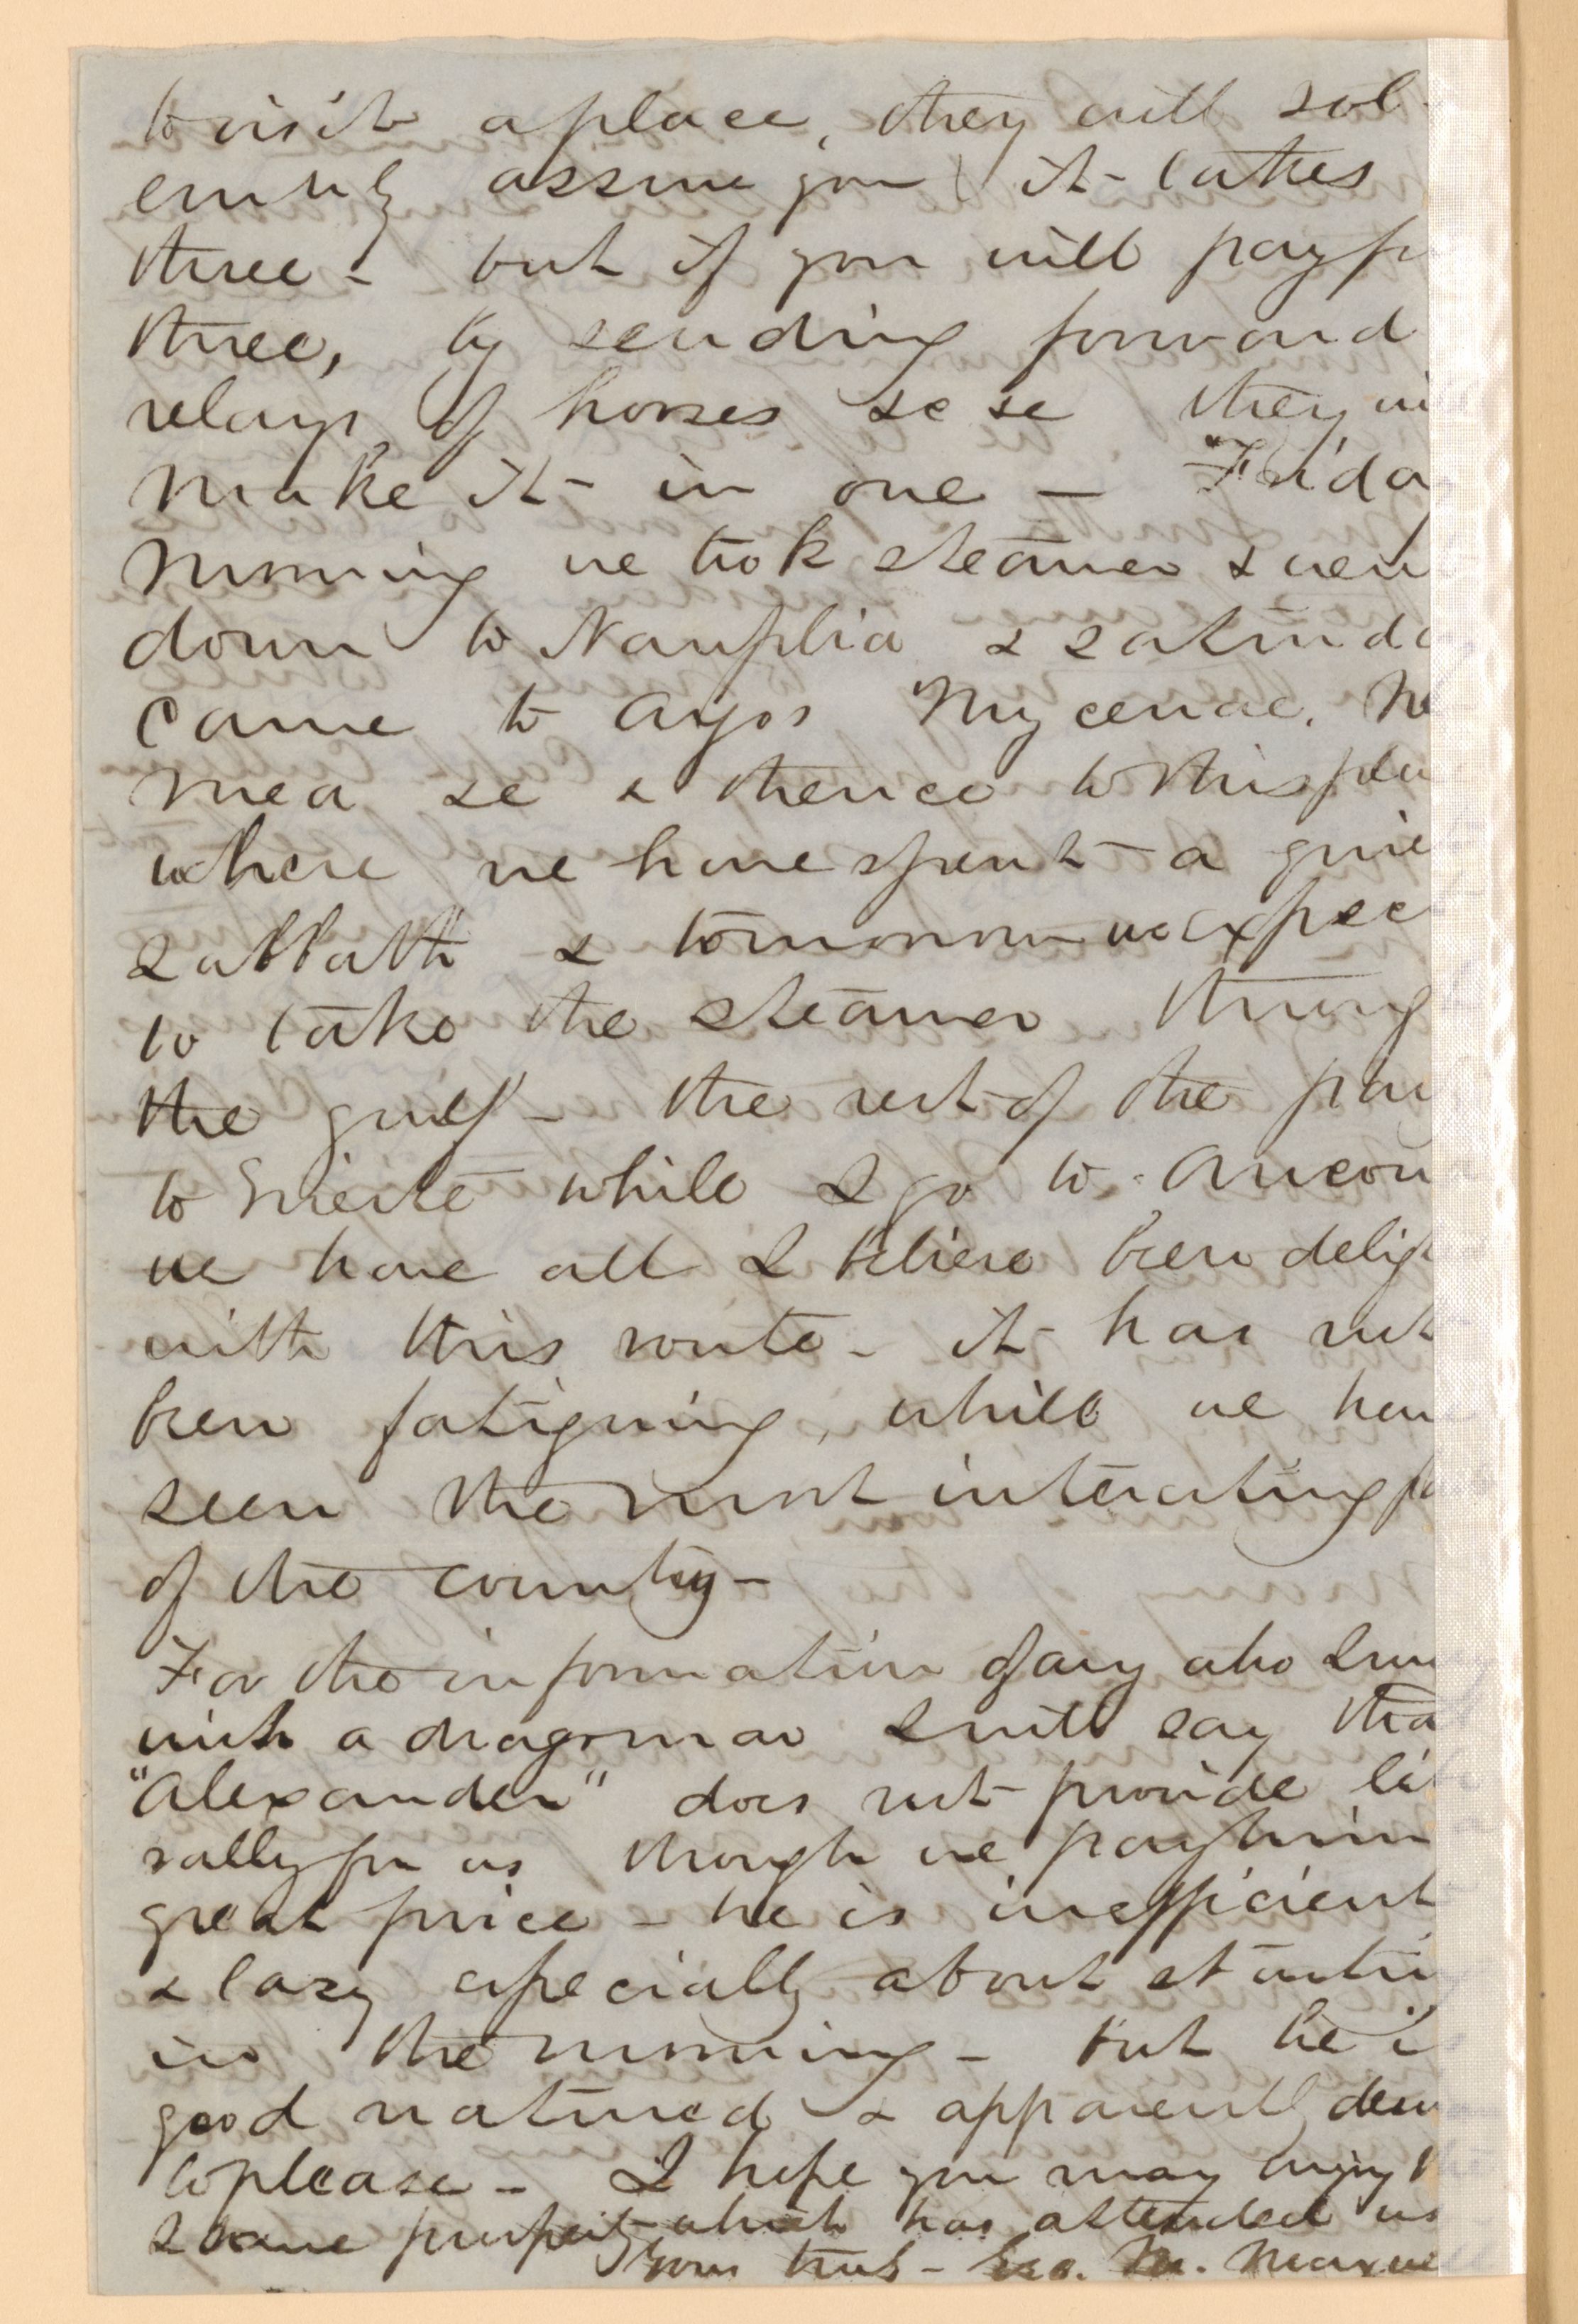 to visit a place, they will sol-
emnly assure you it takes
three - but if you will pay for
three, by sending forward
relays of horses &c &c they wi
make it in one — Frida
morning we took steamer & wen
down to Nauplia & saturda
came to Argos Mycenae, Ne
mea &c & thence to this pla
where we have spent a quie
sabbath & tomorrow we expec
to take the steamer throug
the gulf - the rest of the par
to Trieste while I go to Ancon
we have all I believe been delig
with this route - it has not
been fatiguing, while we hav
seen the most interesting pa
of the country -
For the information of any who
wish a dragoman I will say tha
"Alexander" does not provide li
rally for us though we pay him
great price - he is inefficient
& lazy especially about startin
in the morning - but he i
good natured & apparently
to please - I hope you may enjoy
same prosperity which has attended us
Yours truly - Geo. M.